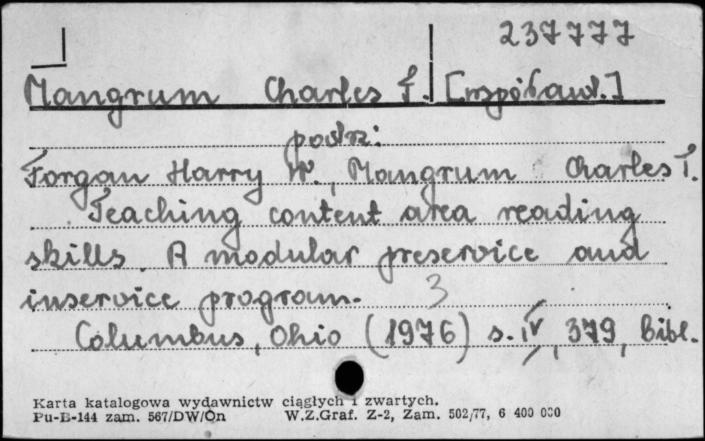 237777
Mangrum Charles T. [współaut.]
podrz:
Forgan Harry W., Mangrum Charles T.
Teaching content area reading
skills. A modular preservice and
inservice program. 3
Columbus, Ohio (1976) s. IV, 379, bibl.
Karta katalogowa wydawnictw ciągłych i zwartych.
Pu-B-144 zam. 567/DW/On W.Z.Graf. Z-2, Zam. 502/77, 6 400 000